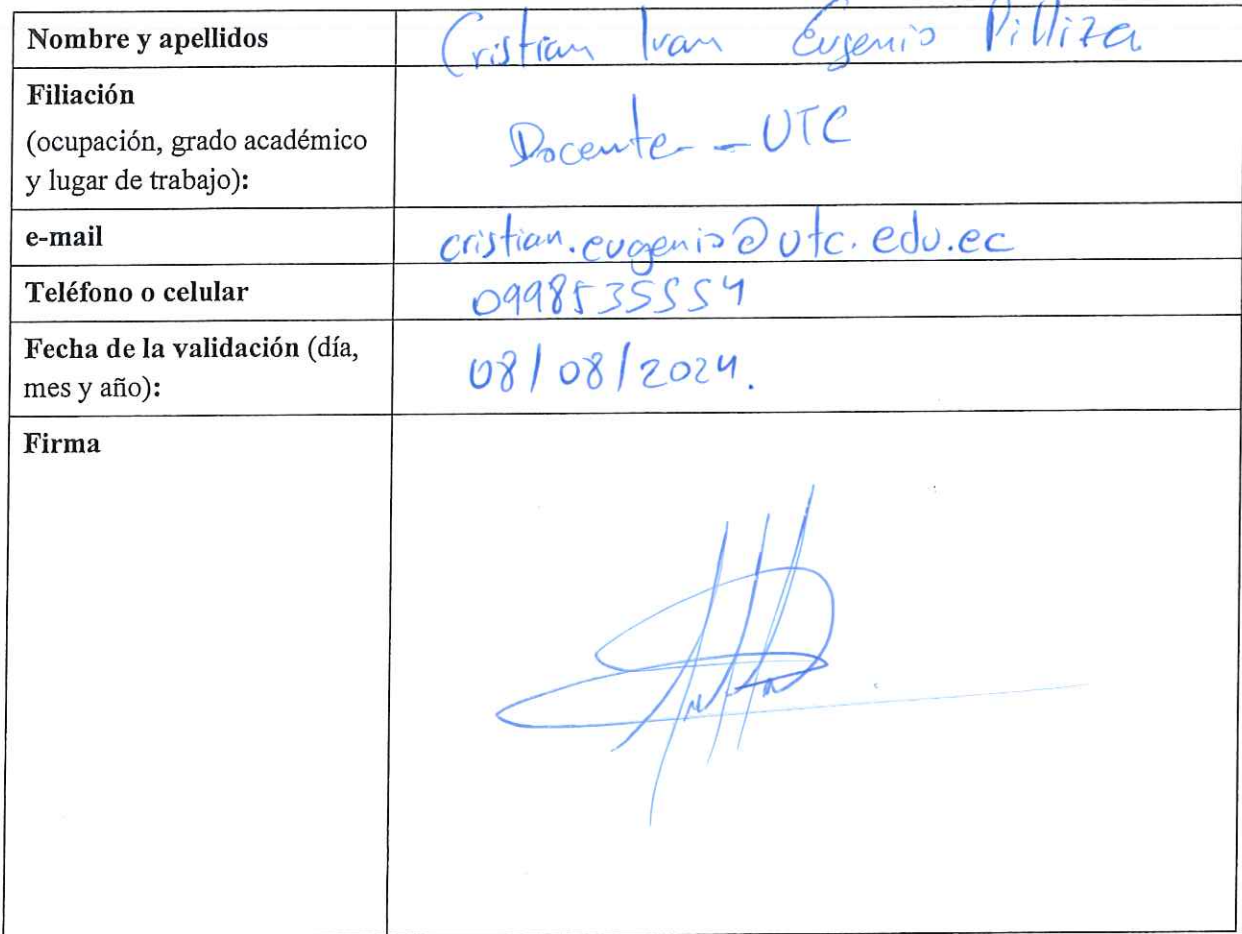 Nombre y apellidos
Cristian Ivan Eugenio Pilliza
Filiación
(ocupación, grado académico
y lugar de trabajo):
Docente - UTC
e-mail
cristian.eugenio@utc.edu.ec
Teléfono o celular
0998535554
Fecha de la validación (día,
mes y año):
08/08/2024.
Firma